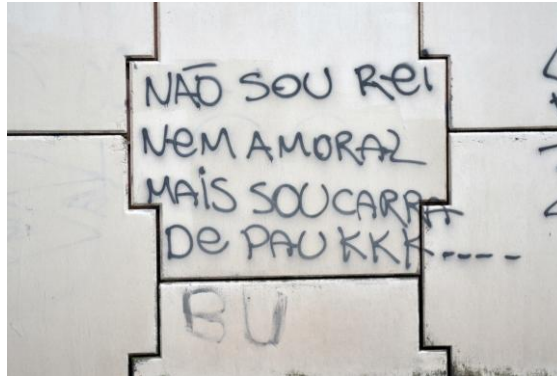 NÃO SOU Rei
NeM AMORAL
MAiS SOU CARRA
De PAU KKK----
BU